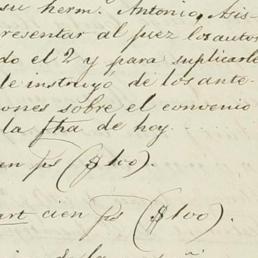 su herm. Antonio, Asis-
presentar al juez los autos
do el 2 y para suplicarle
le instruyó de los ante-
ones sobre el convenio
la fha de hoy....
en ps ($100).
art cien ps ($100).